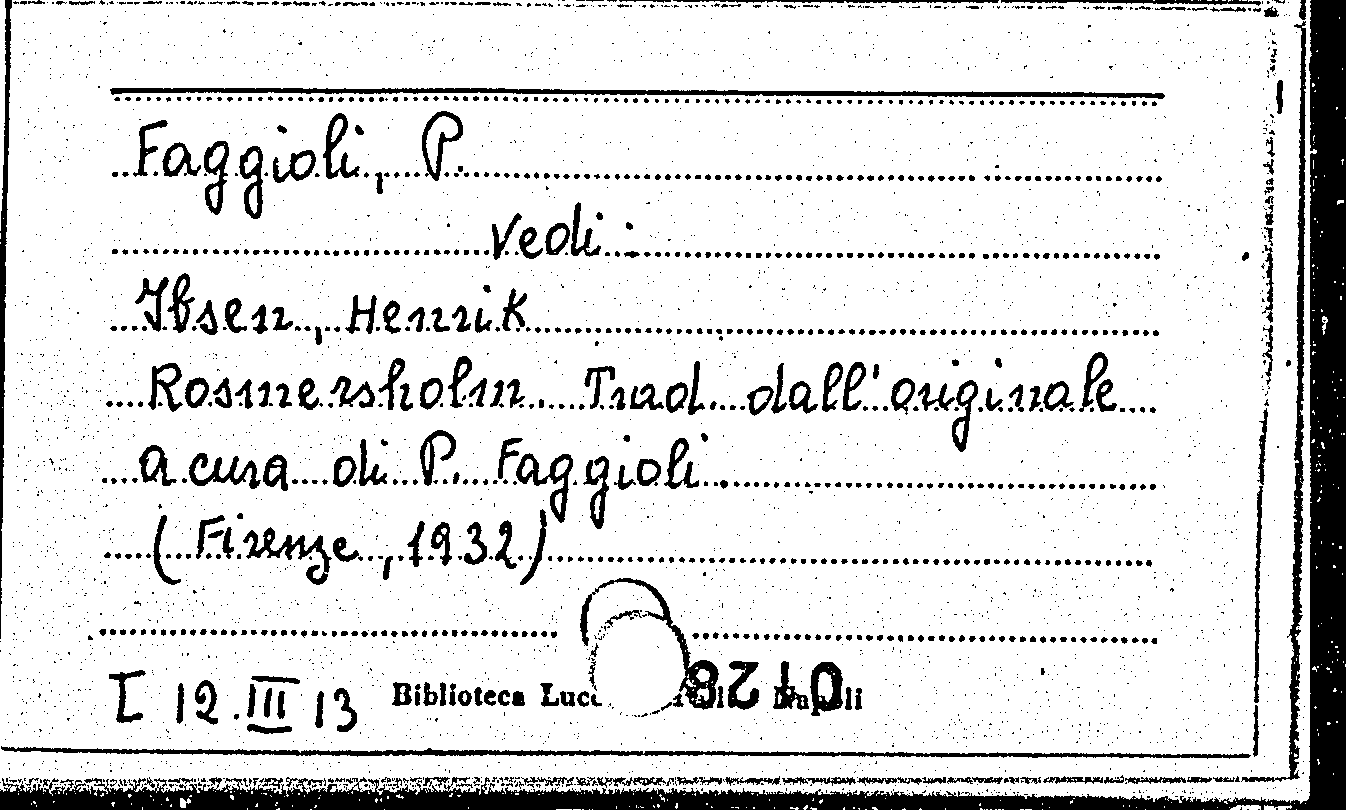 Faggioli, P.
vedi:
Ibsen, Henrik
Rosmersholm. Trad. dall'originale
a cura di P. Faggioli.
(Firenze, 1932)
I 12.III 13 Biblioteca Napoli